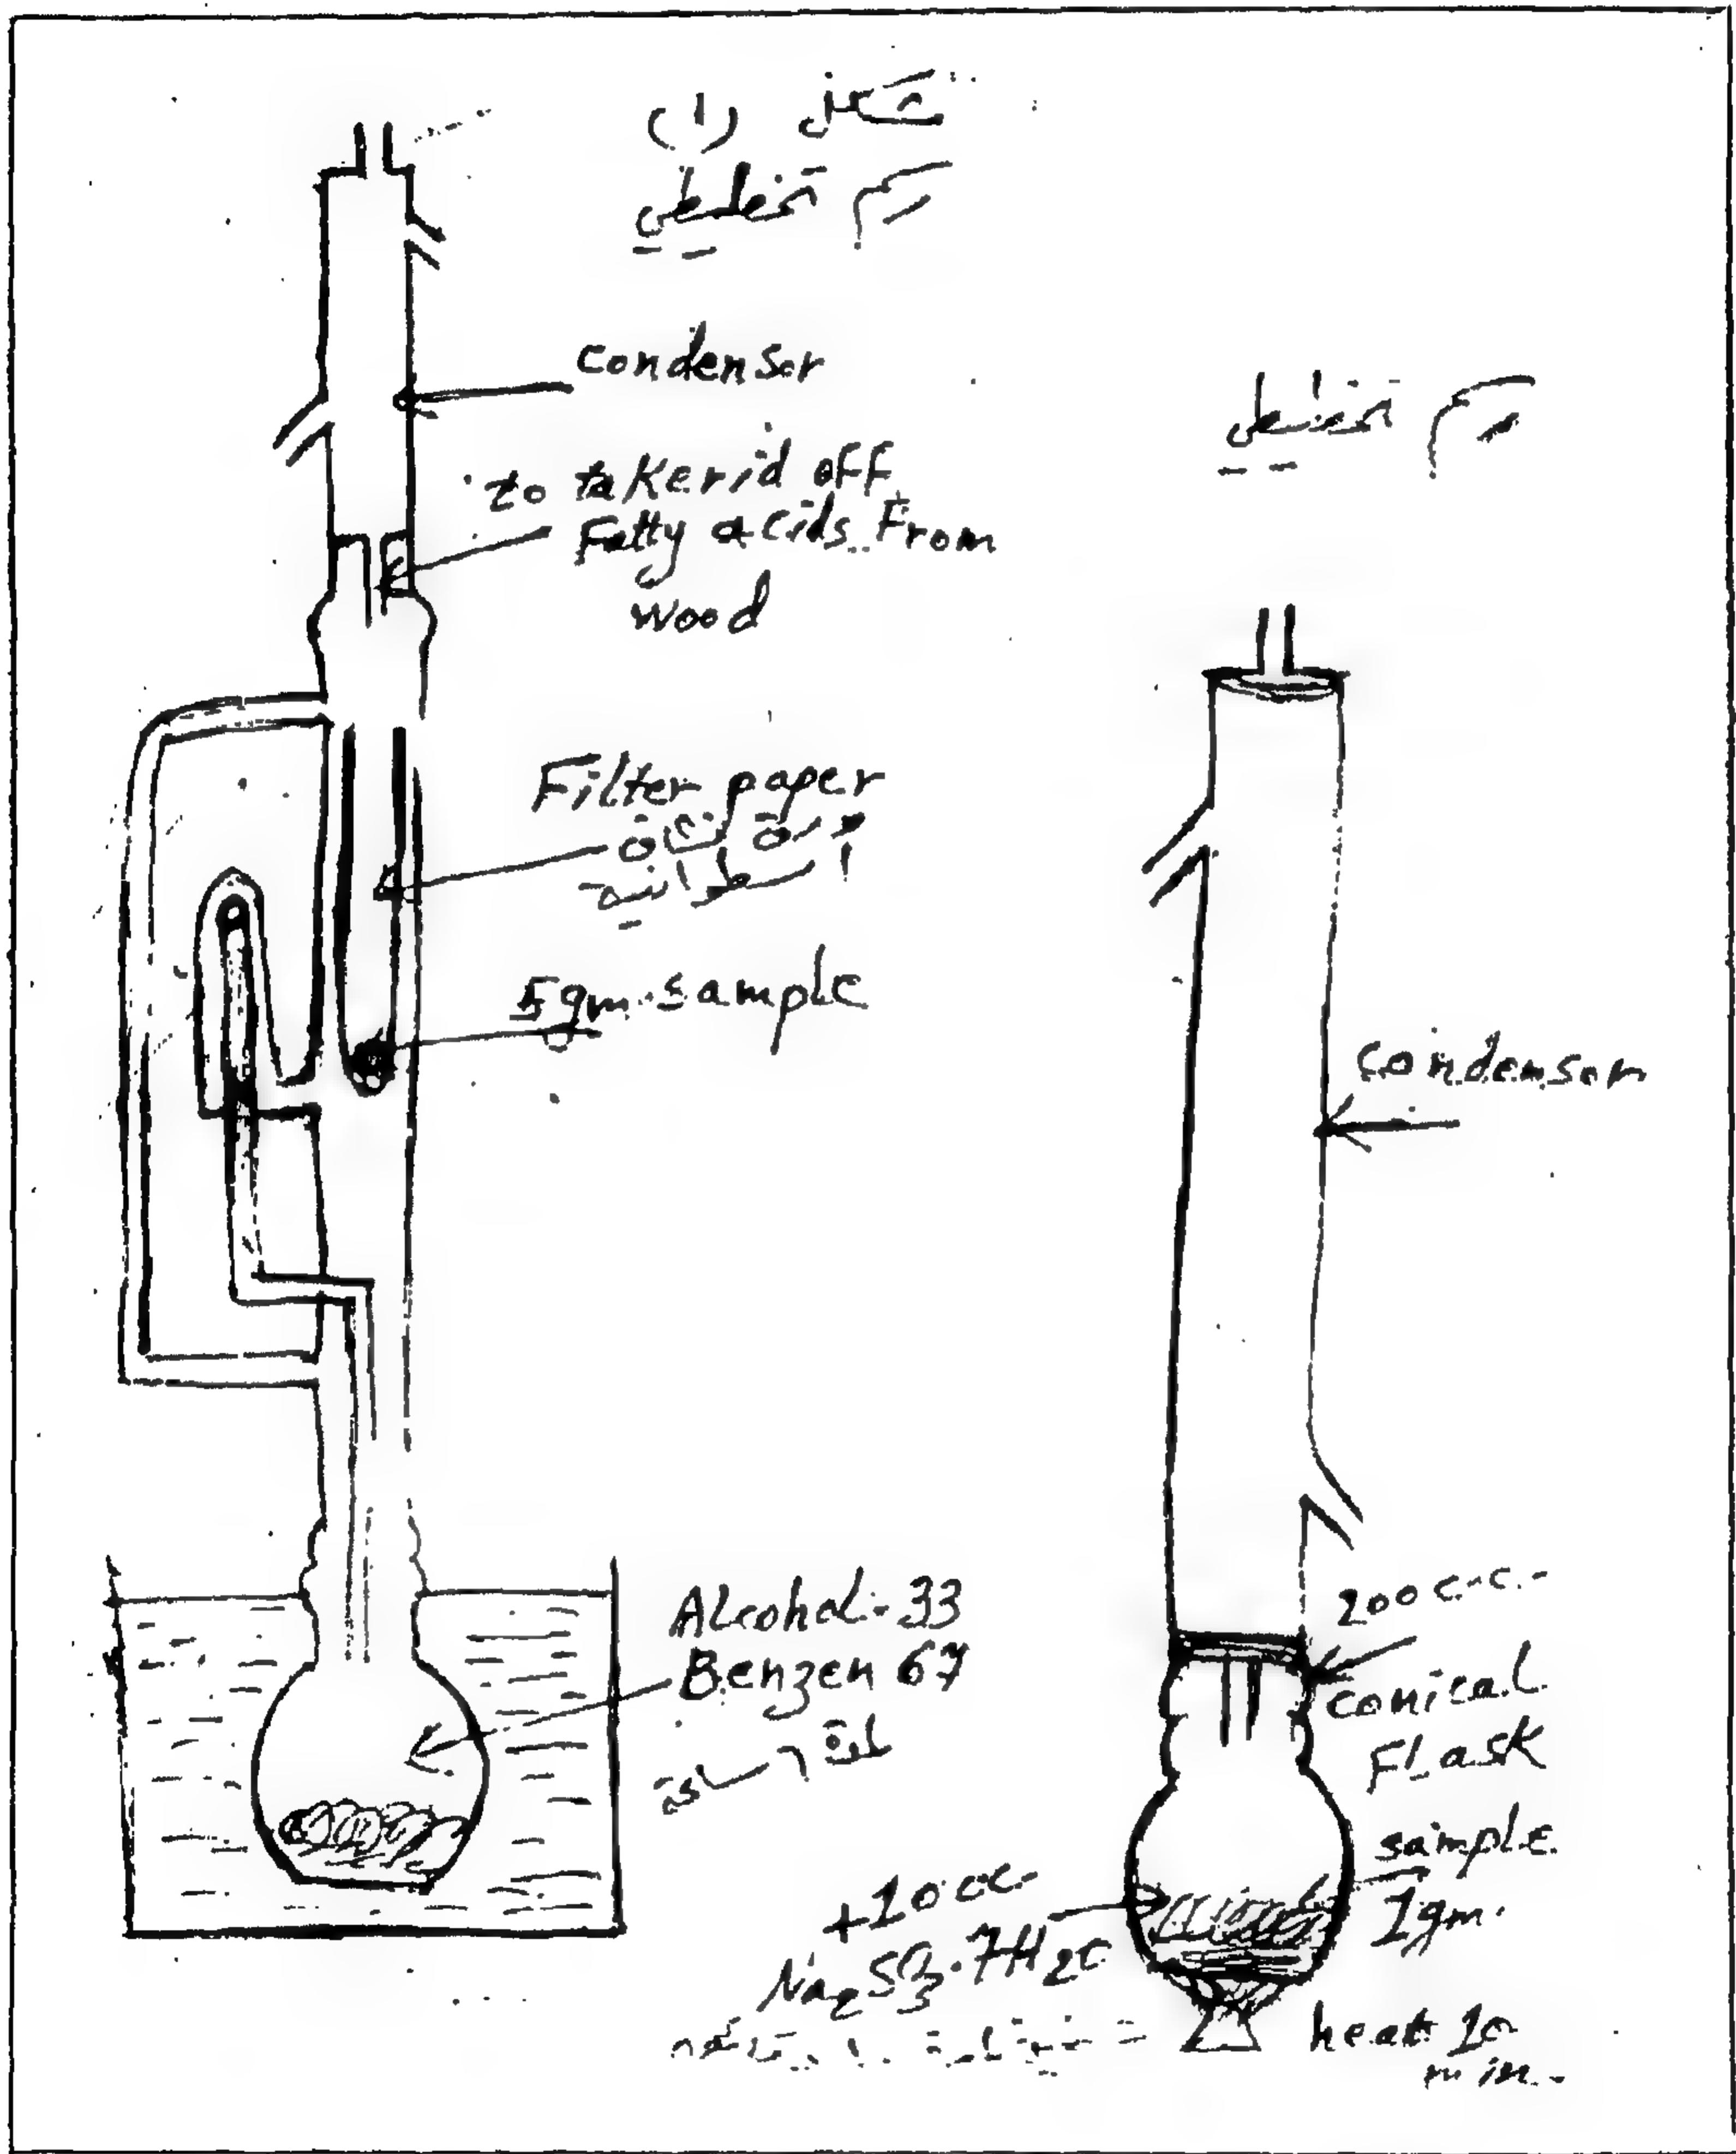 شكل (١)
رسم تخطيطي
condensor
to take rid off
Fatty acids From
wood
Filter paper
ورقة
اسطوانية
5gm sample
Alcohol - 33
Benzen 67
لمدة ٦ ساعة
رسم تخطيطي
condensor
200 c.c.
conical
Flask
sample
1gm.
+10 cc
Na2SO3.7H2O
heat 10
min.